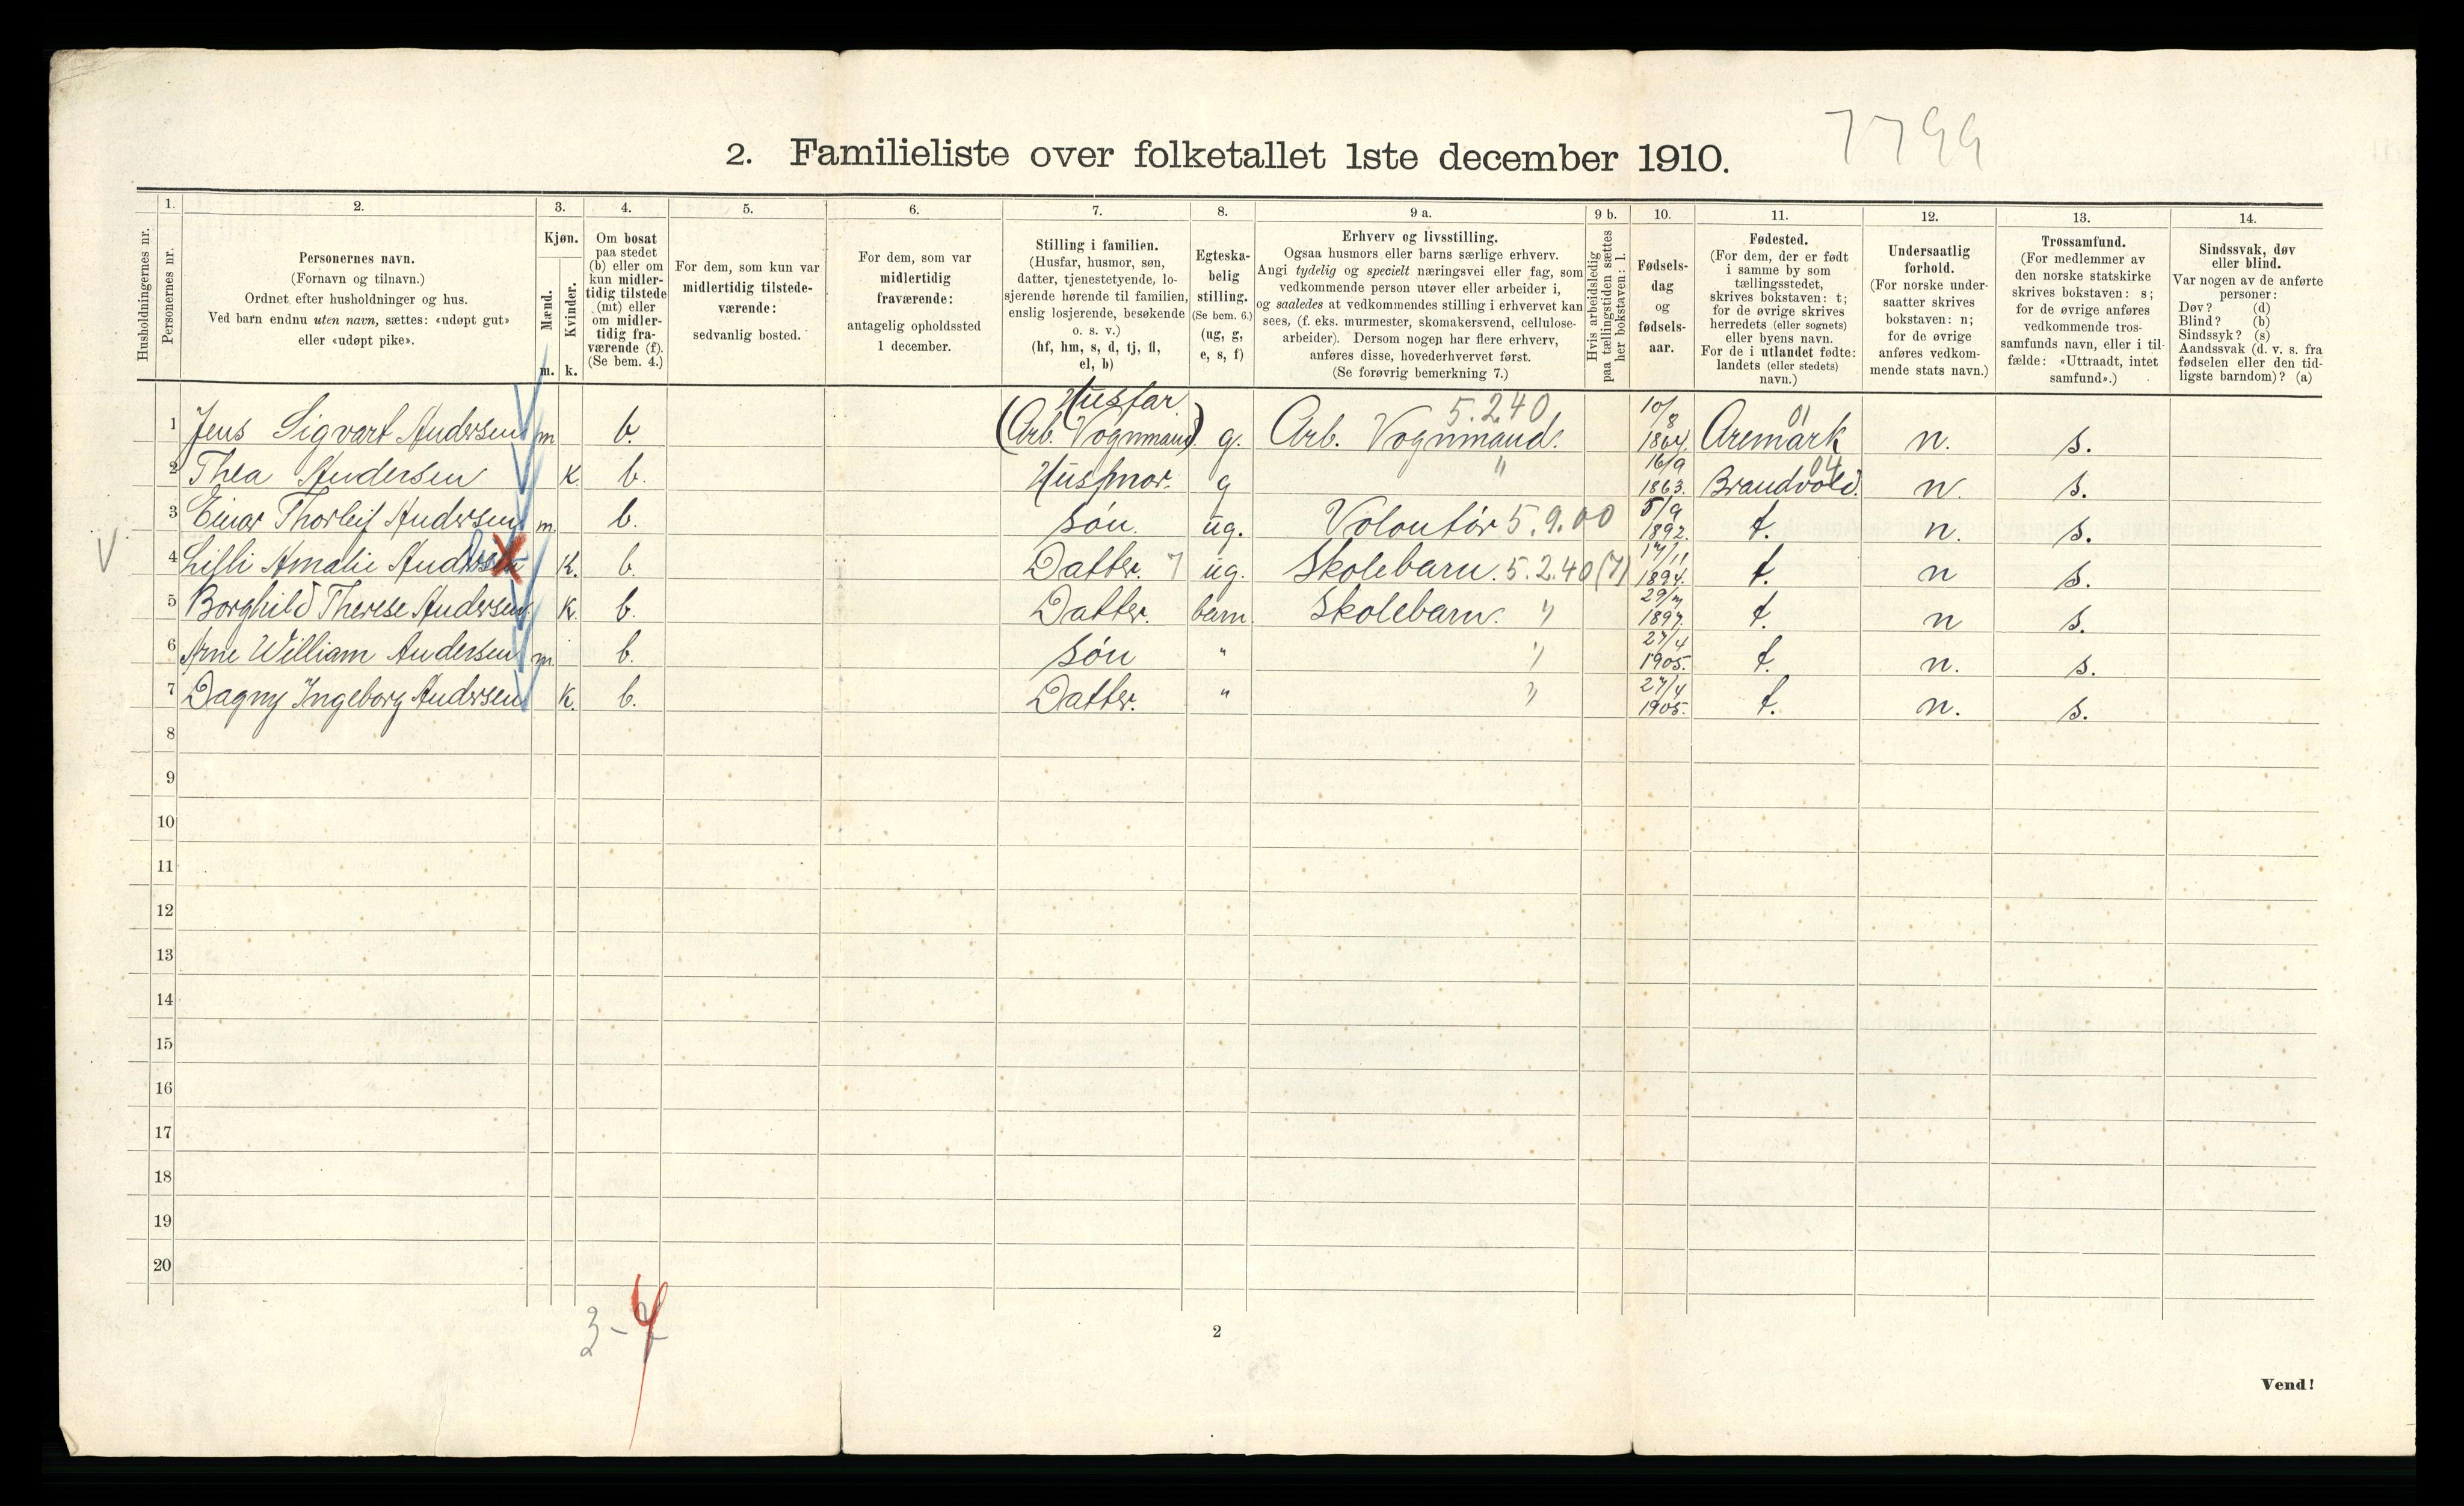 7799
2. Familieliste over folketallet 1ste december 1910.
Husholdningernes nr.
1.
Personernes nr.
2.
Personernes navn.
(Fornavn og tilnavn.)
Ordnet efter husholdninger og hus.
Ved barn endnu uten navn, sættes: «udøpt gut»
eller «udøpt pike».
3.
Kjøn.
Mænd.
Kvinder.
m. k.
4.
Om bosat
paa stedet
(b) eller om
kun midler-
tidig tilstede
(mt) eller
om midler-
tidig fra-
værende (f).
(Se bem. 4.)
5.
For dem, som kun var
midlertidig tilstede-
værende:
sedvanlig bosted.
6.
For dem, som var
midlertidig
fraværende:
antagelig opholdssted
1 december.
7.
Stilling i familien.
(Husfar, husmor, søn,
datter, tjenestetyende, lo-
sjerende hørende til familien,
enslig losjerende, besøkende
o. s. v.)
(hf, hm, s, d, tj, fl,
el, b)
8.
Egteska-
belig
stilling.
(Se bem. 6.)
(ug, g,
e, s, f)
9 a.
Erhverv og livsstilling.
Ogsaa husmors eller barns særlige erhverv.
Angi tydelig og specielt næringsvei eller fag, som
vedkommende person utøver eller arbeider i,
og saaledes at vedkommendes stilling i erhvervet kan
sees, (f. eks. murmester, skomakersvend, cellulose-
arbeider). Dersom nogen har flere erhverv,
anføres disse, hovederhvervet først.
(Se forøvrig bemerkning 7.)
9 b.
Hvis arbeidsledig
paa tællingstiden sættes
her bokstaven: l.
10.
Fødsels-
dag
og
fødsels-
aar.
11.
Fødested.
(For dem, der er født
i samme by som
tællingsstedet,
skrives bokstaven: t;
for de øvrige skrives
herredets (eller sognets)
eller byens navn.
For de i utlandet fødte:
landets (eller stedets)
navn.)
12.
Undersaatlig
forhold.
(For norske under-
saatter skrives
bokstaven: n;
for de øvrige
anføres vedkom-
mende stats navn.)
13.
Trossamfund.
(For medlemmer av
den norske statskirke
skrives bokstaven: s;
for de øvrige anføres
vedkommende tros-
samfunds navn, eller i til-
fælde: «Uttraadt, intet
samfund».)
14.
Sindssvak, døv
eller blind.
Var nogen av de anførte
personer:
Døv? (d)
Blind? (b)
Sindssyk? (s)
Aandssvak (d. v. s. fra
fødselen eller den tid-
ligste barndom)? (a)
Husfar. 5.240 10/8 01
1 Jens Sigvart Andersen m b. (Arb. Vognmand) g. Arb. Vognmand. 1864. Aremark n. s.
16/9 04
2 Thea Andersen K. b. Husmor. g " 1863. Brandvold. n. s.
5/9
3 Einar Thorleif Andersen m. b. søn. ug. Volontør 5.9.00 1892. t. n. s.
17/11
V 4 Lilli Amalie Andersen K. b. Datter. 7 ug. Skolebarn. 5.2.40 (7) 1894. t. n s.
29/7
5 Borghild Therese Andersen K. b. Datter. barn. Skolebarn. " 1897. t. n s.
27/4
6 Arne William Andersen m. b. søn " " 1905. t. n. s.
27/4
7 Dagny Ingeborg Andersen K. b. Datter. " " 1905. t. n. s.
8
9
10
11
12
13
14
15
16
17
18
19
20
3-4
2
Vend!